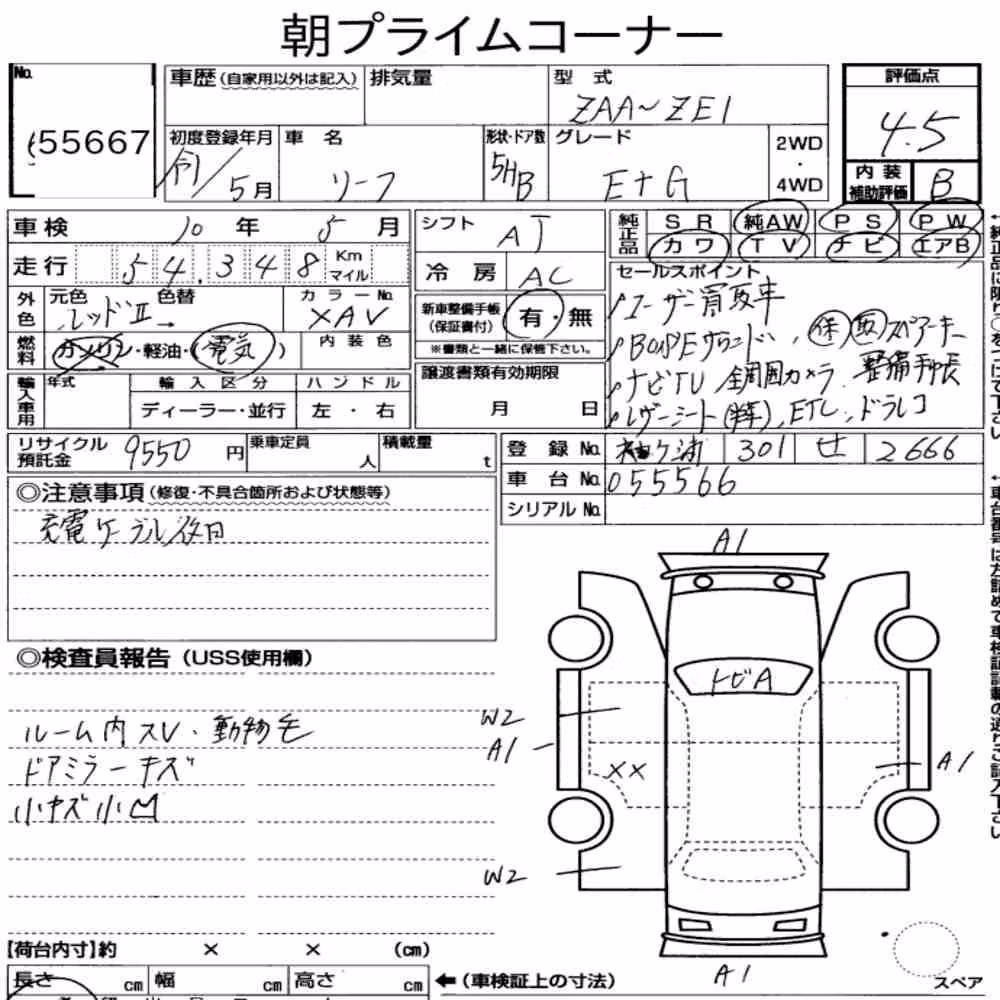 朝プライムコーナー
No. 55667
車歴(自家用以外は記入) 排気量 型式 ZAA~ZE1
評価点 4.5
初度登録年月 車名 形状・ドア数 グレード 2WD・4WD
令1/5月 リーフ 5HB E+G
内装補助評価 B
車検 10年5月
シフト AT
純正品 SR 純AW PS PW
カワ TV ナビ エアB
走行 54,348 Km マイル
冷房 AC
セールスポイント
ユーザー買取車
外色 元色 色替 カラーNo.
レッドII→ XAV
新車整備手帳(保証書付) 有・無
※書類と一緒に保管下さい。
BOSEサウンド、保 取 スペアーキー
燃料 ガソリン・軽油・(電気) 内装色
ナビTV 全周囲カメラ 整備手帳
輸入車用 年式 輸入区分 ハンドル
ディーラー・並行 左・右
譲渡書類有効期限
月 日
レザーシート(半革)、ETC、ドラレコ
リサイクル預託金 9550円 乗車定員 人 積載量 t
登録No. 袖ヶ浦 301 せ 2666
車台No. 055566
シリアルNo.
◎注意事項(修復・不具合箇所および状態等)
充電ケーブル後日
◎検査員報告(USS使用欄)
ルーム内スレ・動物毛
ドアミラーキズ
小キズ小凹
A1
トビA
W2
A1
XX
A1
W2
A1
【荷台内寸】約 × × (cm)
長さ cm 幅 cm 高さ cm
←(車検証上の寸法)
スペア